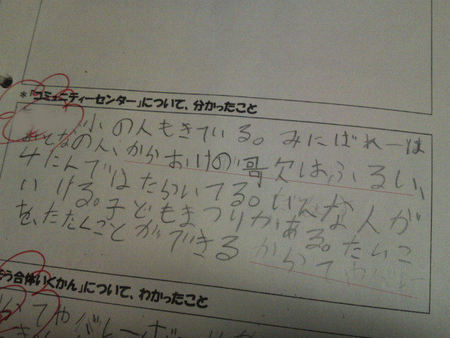 *「コミュニティーセンター」について、分かったこと
小の人もきている。みにばれーは
おとなの人、からおけの歌はふるい、
4たんではたらいてる。いろんな人が
いける。子どもまつりがある。たいこ
を、たたくことができる
合体いくかん」について、わかったこと